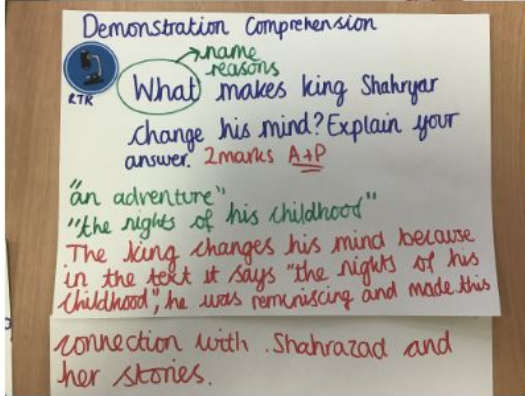 Demonstration Comprehension
name
reasons
RTR
What makes king Shahryar
change his mind? Explain your
answer. 2marks A+P
"an adventure"
"the nights of his childhood"
The king changes his mind because
in the text it says "the nights of his
childhood", he was reminiscing and made this
connection with Shahrazad and
her stories.